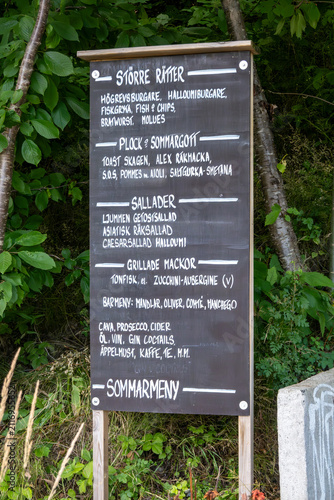 STÖRRE RÄTTER
HÖGREVSBURGARE, HALLOUMIBURGARE,
FISKGRYTA, FISH & CHIPS,
BRATWURST, MOULES
PLOCK & SOMMARGOTT
TOAST SKAGEN, ALEX RÄKMACKA,
S.O.S, POMMES M. AIOLI, SALTGURKA-SMETANA
SALLADER
LJUMMEN GETOSTSALLAD
ASIATISK RÄKSALLAD
CAESARSALLAD HALLOUMI
GRILLADE MACKOR
TONFISK, EL. ZUCCHINI-AUBERGINE (V)
BARMENY: MANDLAR, OLIVER, COMTÉ, MANCHEGO
CAVA, PROSECCO, CIDER
ÖL, VIN, GIN COCTAILS,
ÄPPELMUST, KAFFE, TE, M.M.
SOMMARMENY